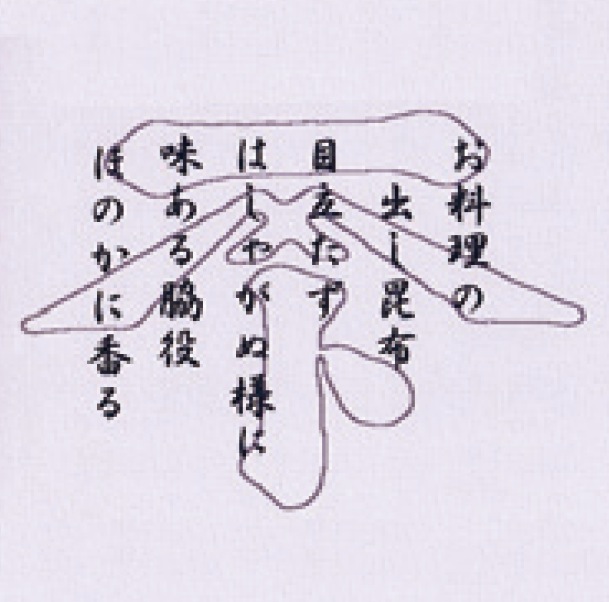 お料理の
出し昆布
目立たず
はしゃがぬ様に
味ある脇役
ほのかに番る